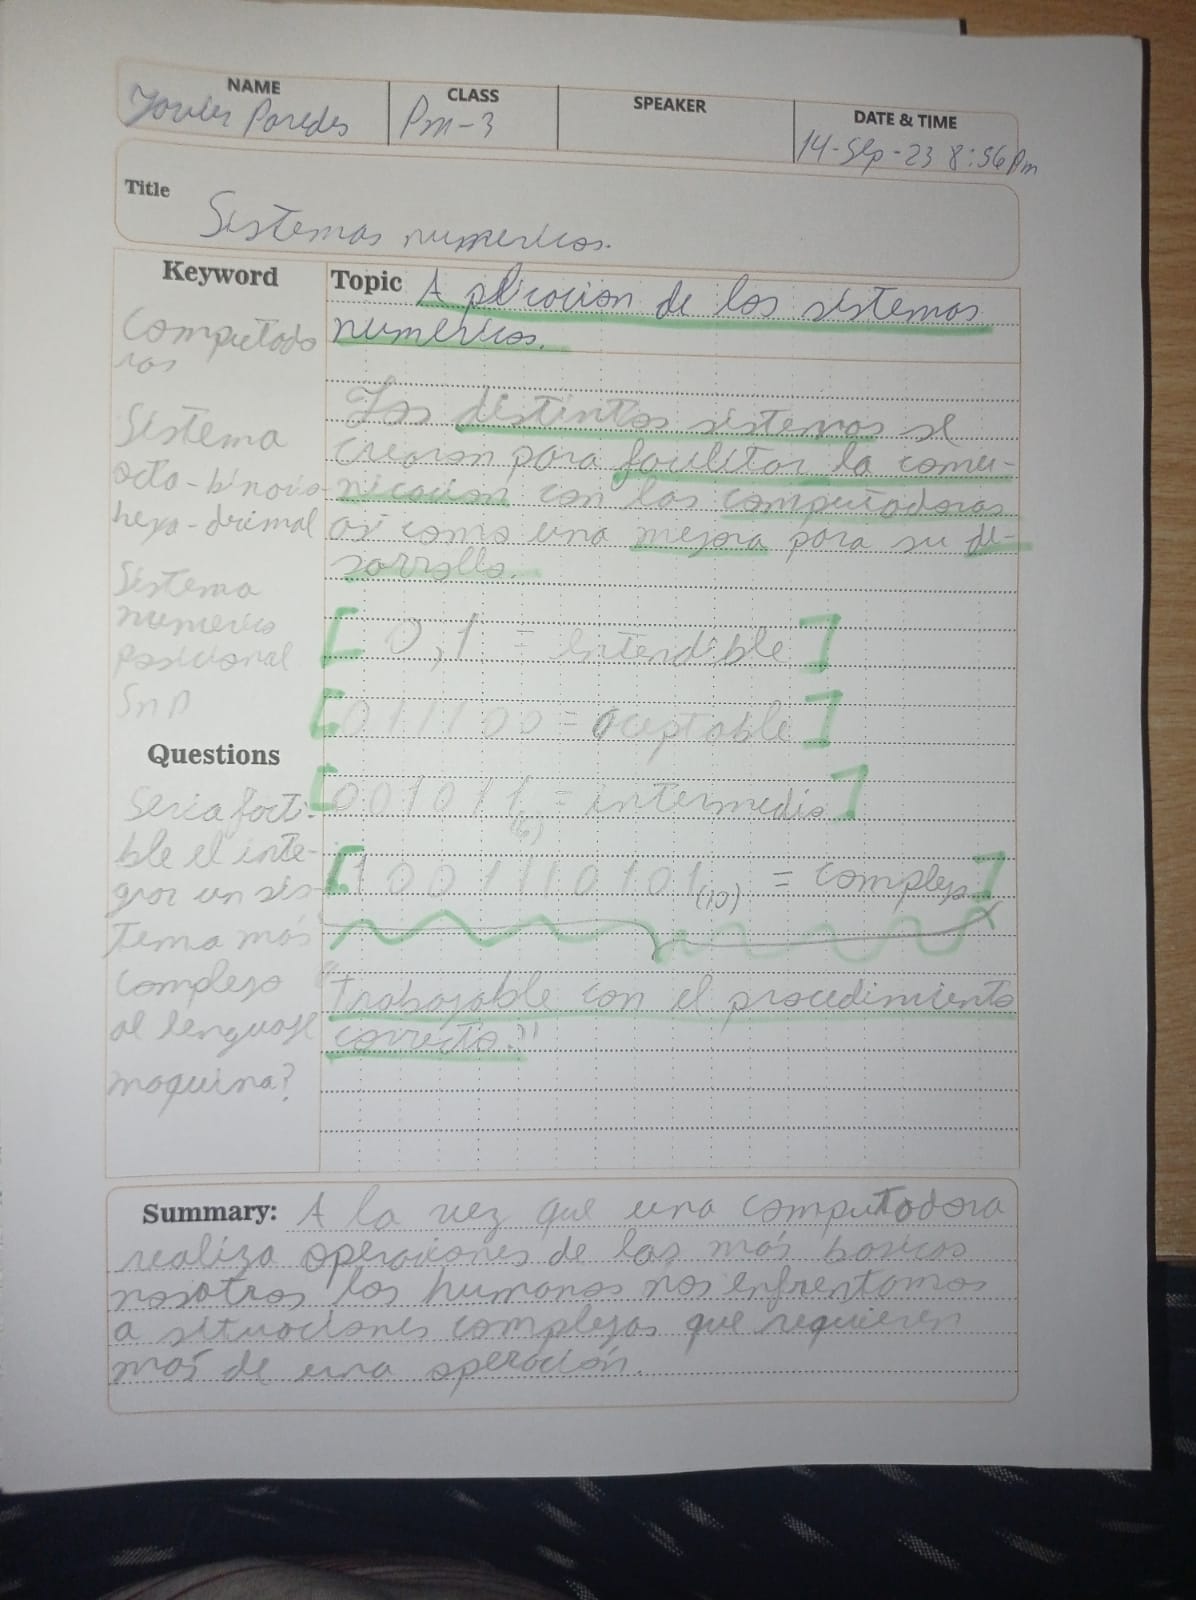 NAME
Javier Paredes
CLASS
Pm-3
SPEAKER
DATE & TIME
14-Sep-23 8:56 Pm
Title
Sistemas numericos.
Keyword
Computado
ras
Sistema
octa-binario
hexa-decimal
Sistema
numerico
posicional
SnP
Questions
Seria facti-
ble el inte-
grar un sis-
tema más
complejo
al lenguaje
maquina?
Topic Aplicacion de los sistemas
numericos.
Los distintos sistemas se
crearon para facilitar la comu-
nicacion con las computadoras
asi como una mejora para su de-
sarrollo.
[ 0,1 = entendible ]
[ 011100 = aceptable ]
[ 001011(6) = intermedio ]
[ 10011110101(10) = complejo ]
"Trabajable con el procedimiento
correcto."
Summary: A la vez que una computadora
realiza operaciones de las más basicas
nosotros los humanos nos enfrentamos
a situaciones complejas que requieren
más de una operación.